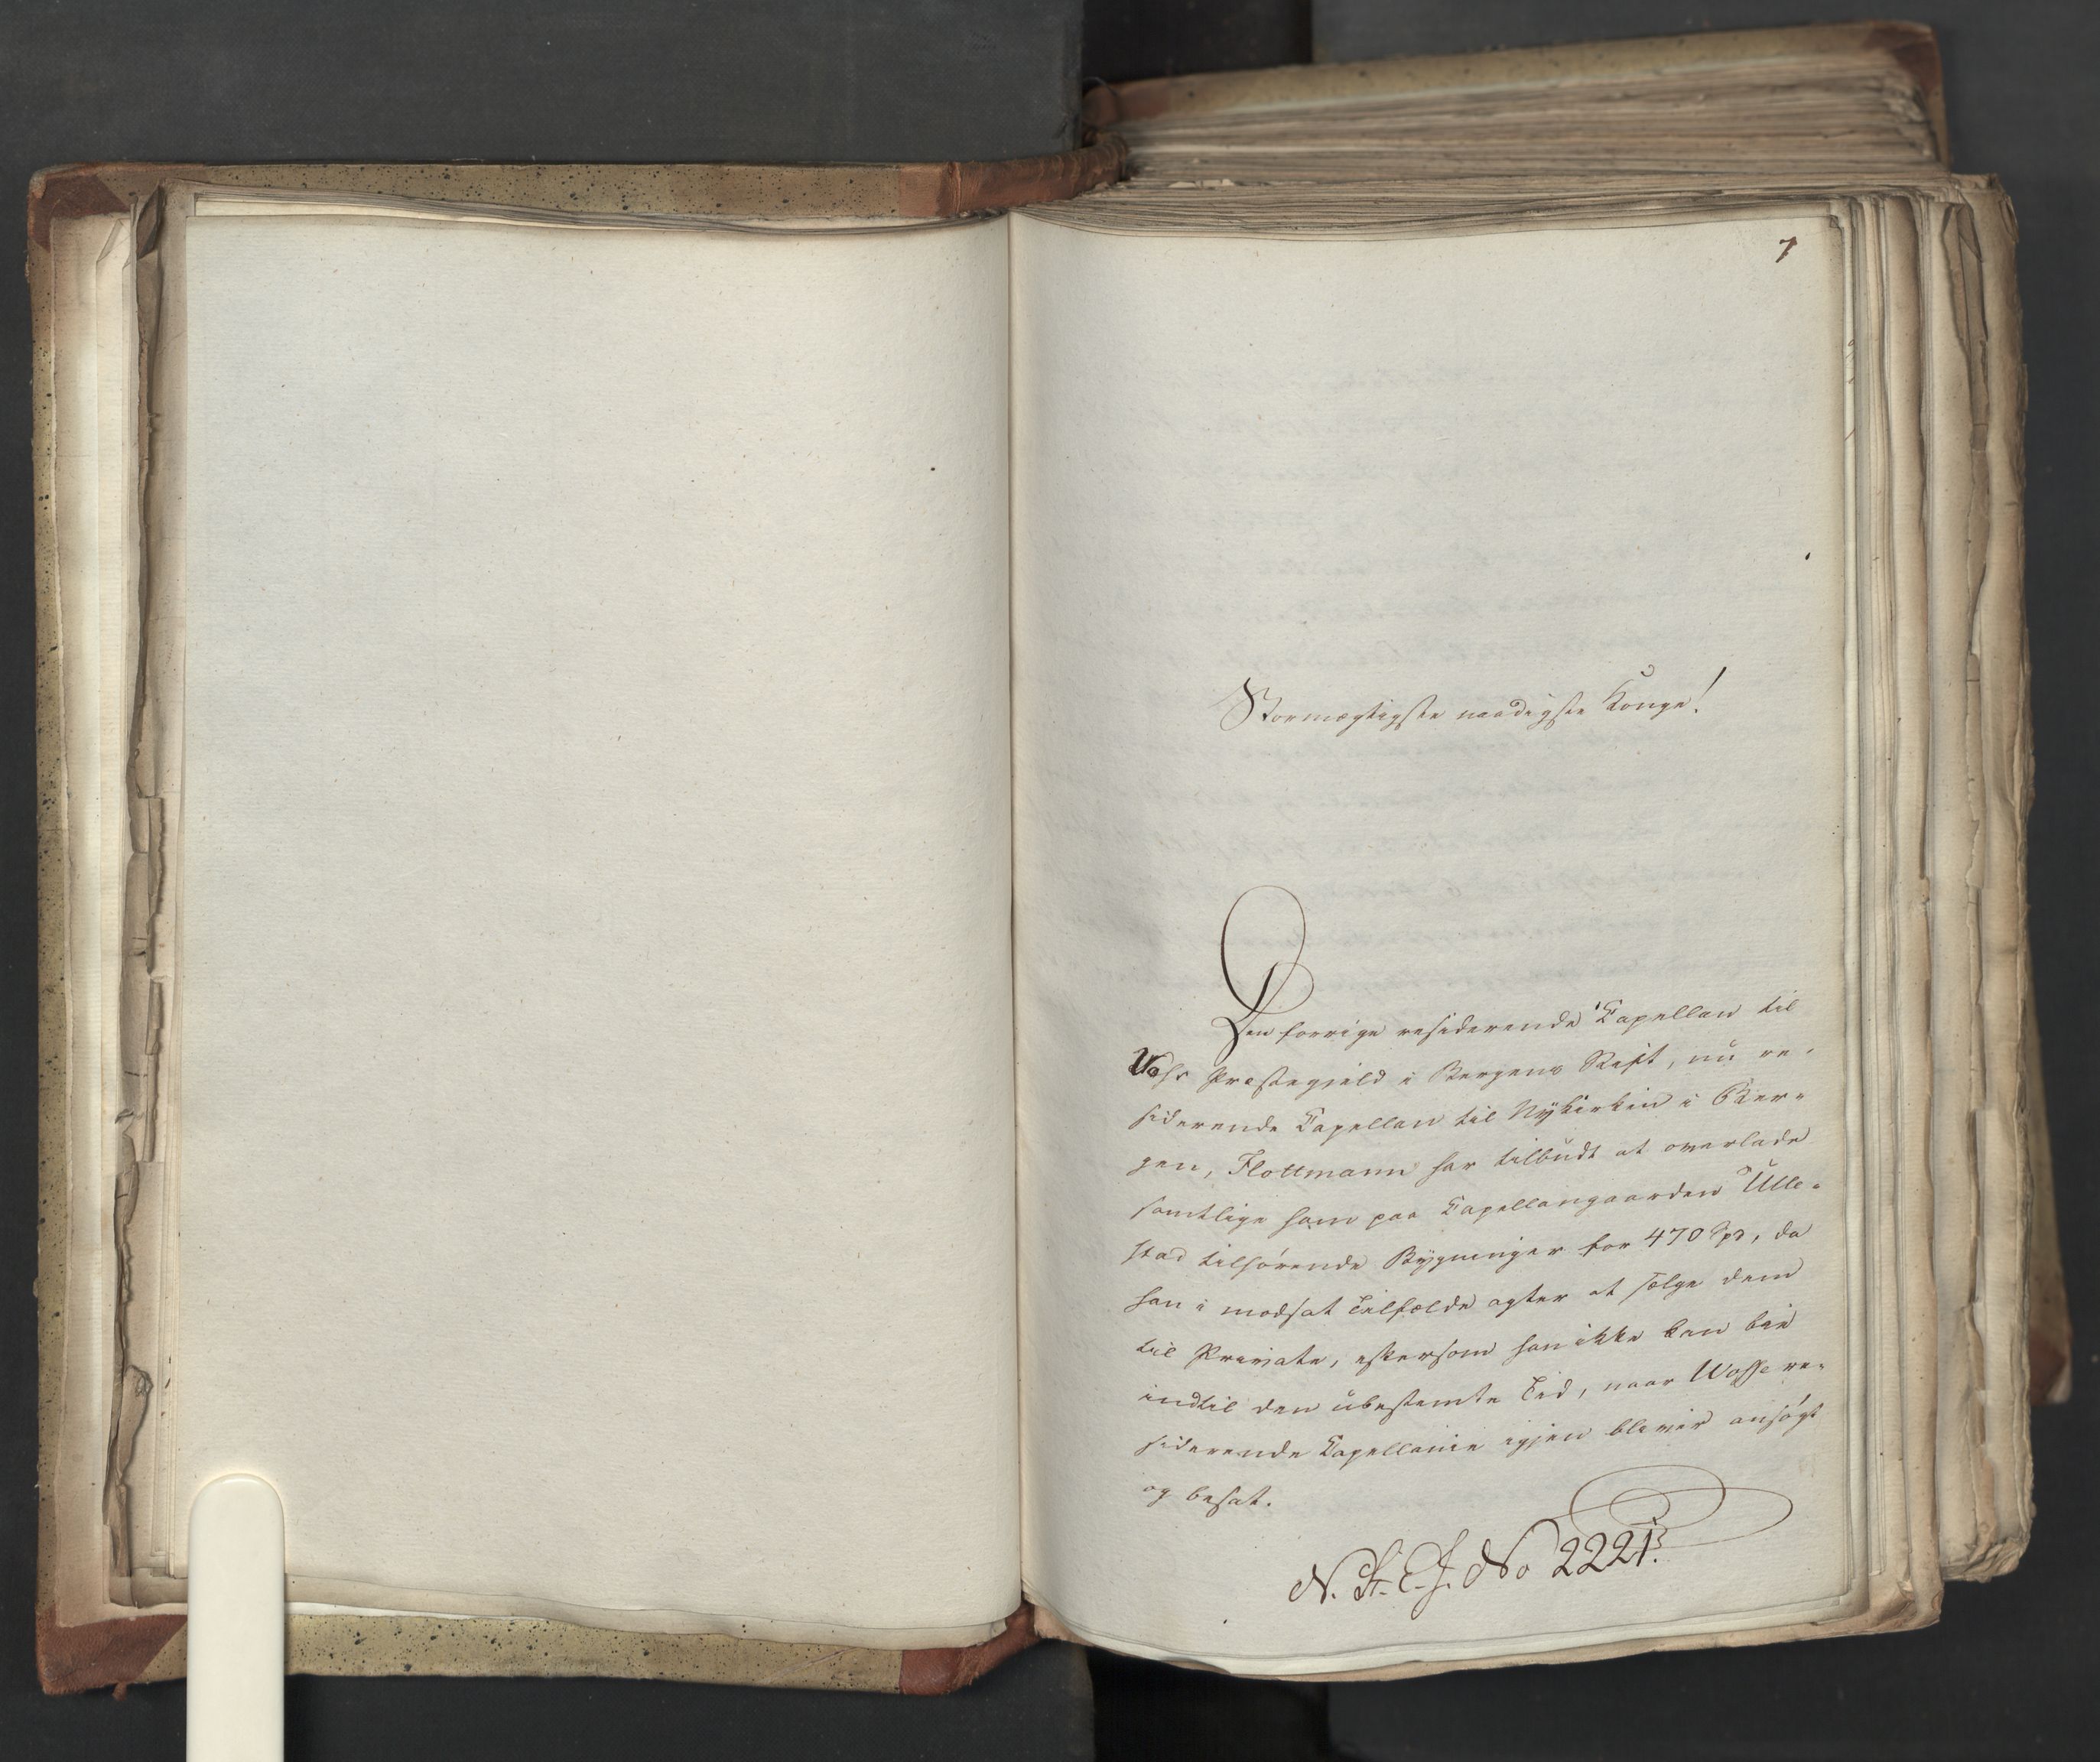 7
Stormægtigste naadigste Konge!
Den forrige residerende Capellan til
Vos Præstegield i Bergens Stift, nu re-
siderende Capellan til Nykirken i Ber-
gen, Flottmann har tilbudt at overlade
samtlige ham paa Capellangaarden Ulle-
stad tilhørende Bygninger for 470 Spd, da
han i modsat Tilfælde agter at sælge dem
til Private, eftersom han ikke kan bie
indtil den ubestemte Tid, naar Wosse re-
siderende Capellanie igjen bliver ansøgt
og besat.
N. St. C. J. No 2221.